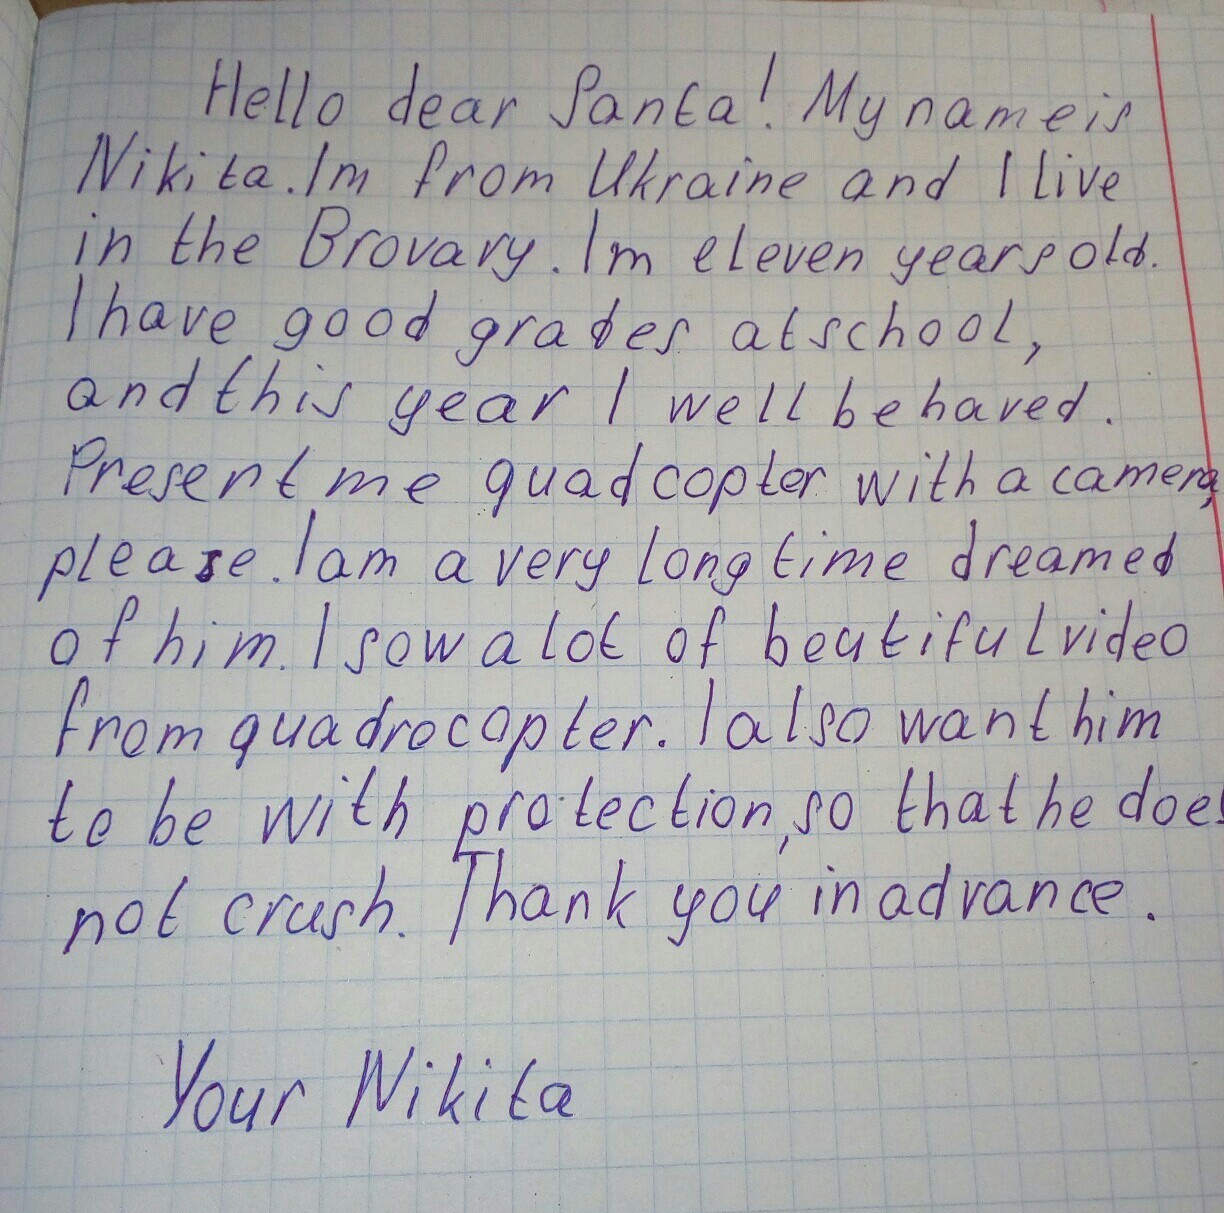 Hello dear Santa! My name is
Nikita. Im from Ukraine and I live
in the Brovary. Im eleven years old.
I have good grades at school,
and this year I well behaved.
Present me quadcopter with a camera,
please. I am a very long time dreamed
of him. I sow a lot of beutiful video
from quadrocopter. I also want him
to be with protection, so that he does
not crush. Thank you in advance.
Your Nikita